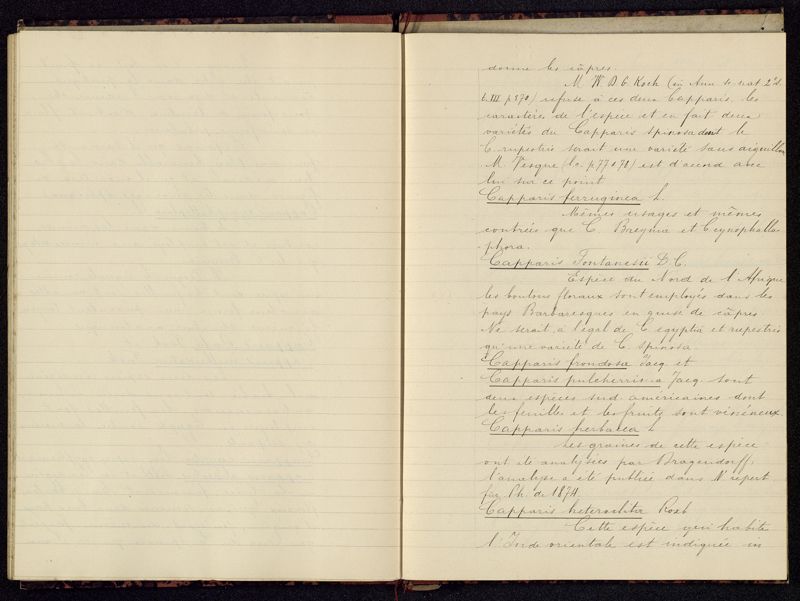 donne les câpres.
M. W. D. G. Koch (in Ann. sc. nat. 2e s.
t. III p 370) refuse à ces deux Capparis les
caractères de l'espèce et en fait deux
variétés du Capparis spinosa dont le
C. rupestris serait une variété sans aiguillon
M. Vesque (lc. p 77 &78) est d'accord avec
lui sur ce point
Capparis ferruginea L.
Mêmes usages et mêmes
contrées que C. Breynia et Cynophallo-
phora.
Capparis Fontanesii D. C.
Espèce du Nord de l'Afrique
les boutons floraux sont employés dans les
pays Barbaresques en guise de câpres
Ne serait, à l'égal de C egyptia et rupestris
qu'une variété de C. spinosa.
Capparis frondosa Jacq. et
Capparis pulcherrima Jacq. sont
deux espèces sud américaines dont
les feuilles et les fruits sont vénéneux.
Capparis herbacea L
Les graines de cette espèce
ont été analysées par Dragendorff;
l'analyse a été publiée dans N. repert.
für Ph. de 1874.
Capparis heteroclita Roxb
Cette espèce qui habite
l'Inde orientale est indiquée in